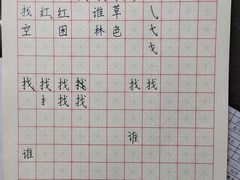 找 红 红 谁 草 乀
空 困 林 色 弋
戈
找 找 找 找 找 找
扌 找 找
谁
谁